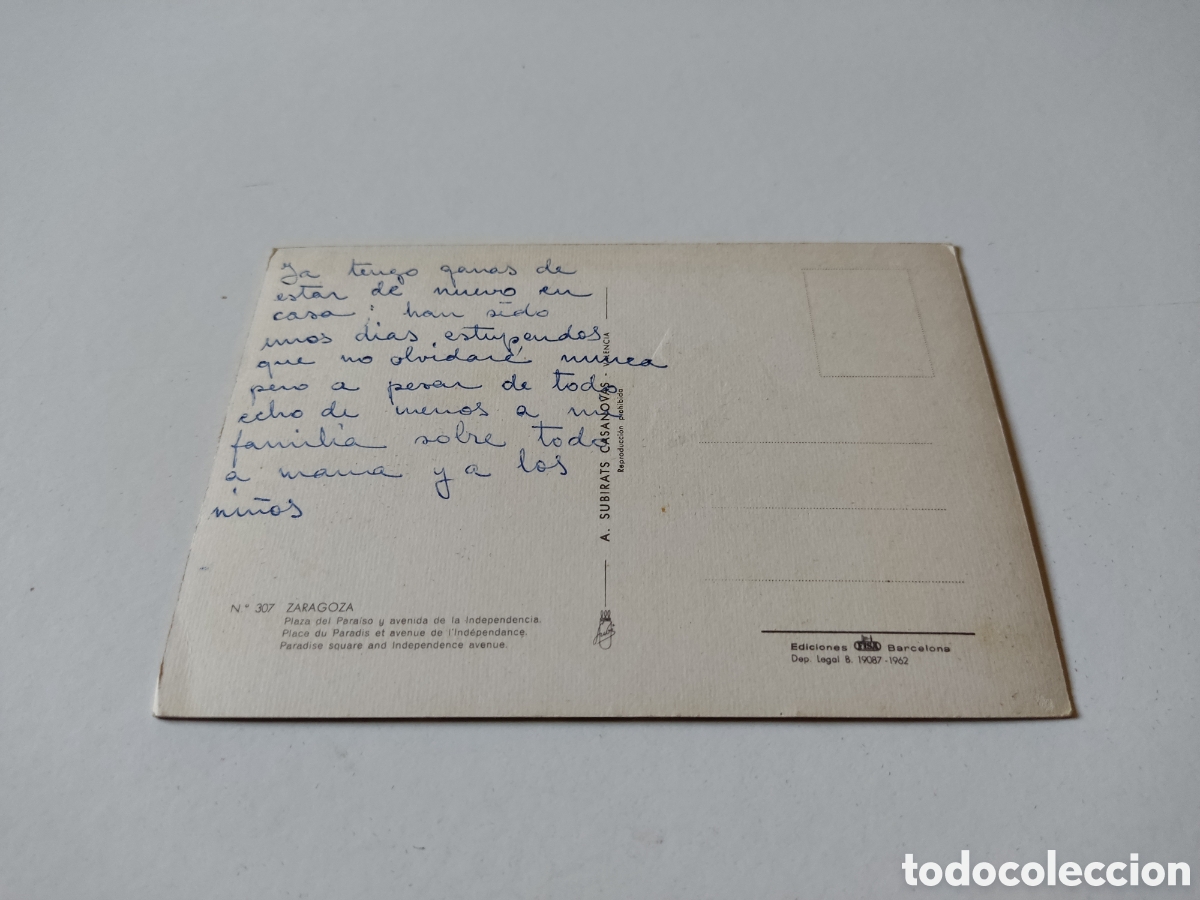 Ya tengo ganas de
estar de nuevo en
casa; han sido
unos dias estupendos
que no olvidaré nunca
pero a pesar de todo
echo de menos a mi
familia sobre todo
a mama y a los
niños
A. SUBIRATS CASANOVAS · VALENCIA
Reproducción prohibida
N.º 307 ZARAGOZA
Plaza del Paraíso y avenida de la Independencia.
Place du Paradis et avenue de l'Indépendance.
Paradise square and Independence avenue.
Ediciones Barcelona
Dep. Legal B. 19087-1962
todocoleccion